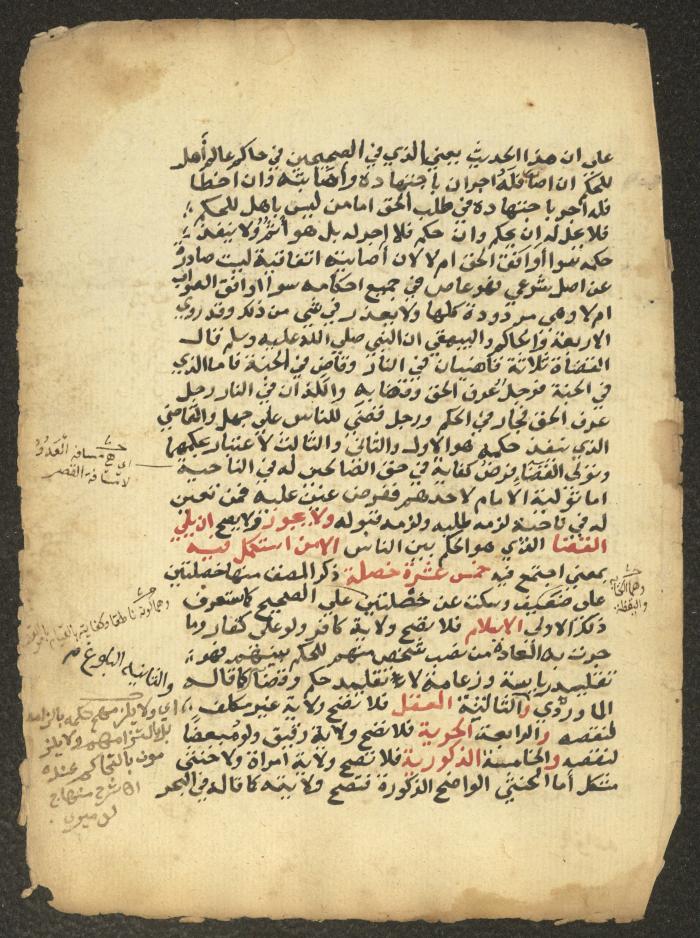 على ان هذا الحديث يعني الذي في الصحيحين في حاكم عالم أهل
للحكم ان اصاب فله اجران باجتهاده واصابته وان اخطا
فله أجر باجتهاده في طلب الحق اما من ليس باهل للحكم
فلا يحل له ان يحكم وان حكم فلا اجر له بل هو آثم ولا ينفذ
حكمه سوا أوافق الحق ام لا لان أصابته اتفاقية ليست صادرة
عن اصل شرعي فهو عاص في جميع احكامه سوا اوافق الصواب
ام لا وهي مردودة كلها ولا يعذر في شي من ذلك وقد روي
الاربعة والحاكم والبيهقي ان النبي صلي الله عليه وسلم قال
القضاة ثلاثة قاضيان في النار وقاض في الجنة فاما الذي
في الجنة فرجل عرف الحق وقضا به والذان في النار رجل
عرف الحق فجار في الحكم ورجل قضي للناس علي جهل والقاضي
الذي ينفذ حكمه هو الاول والثاني والثالث لا اعتبار بحكمهما
وتولي القضا فرض كفاية في حق الصالحين له في الناحية
اما تولية الامام لاحدهم ففرض عين عليه فمن تعين
له في ناحية لزمه طلبه ولزمه قبوله ولا يجوز ولا يصح ان يلي
القضا الذي هو الحكم بين الناس الا من استكمل فيه
بمعني اجتمع فيه خمس عشرة خصلة ذكر المصنف منها خصلتين
على ضعيف وسكت عن خصلتين علي الصحيح كما ستعرف
ذلك الاولي الاسلام فلا تصح ولاية كافر ولو على كفار وما
جرت به العادة من نصب شخص منهم للحكم بينهم فهو
تقليد رياسة وزعامة لا تقليد حكم وقضا كما قاله
الماوردي والثالثة العقل فلا تصح ولاية غير مكلف
لنقصه والرابعة الحرية فلا تصح ولاية رقيق ولو مبعضا
لنقصه والخامسة الذكورية فلا تصح ولاية امراة ولا خنثي
مشكل أما الخنثي الواضح الذكورة فتصح ولايته كما قاله في البحر
اي مسافة العدوي
لا مسافة القصر
وهما
واليقظة
وهما كونه ناطقا وكفايته بالقيام
والثانية البلوغ
اي ولا يلزمهم حكمه بالزامه
بل بالتزامهم ولا يلز
مون بالتحاكم عنده
اه شرح منهاج